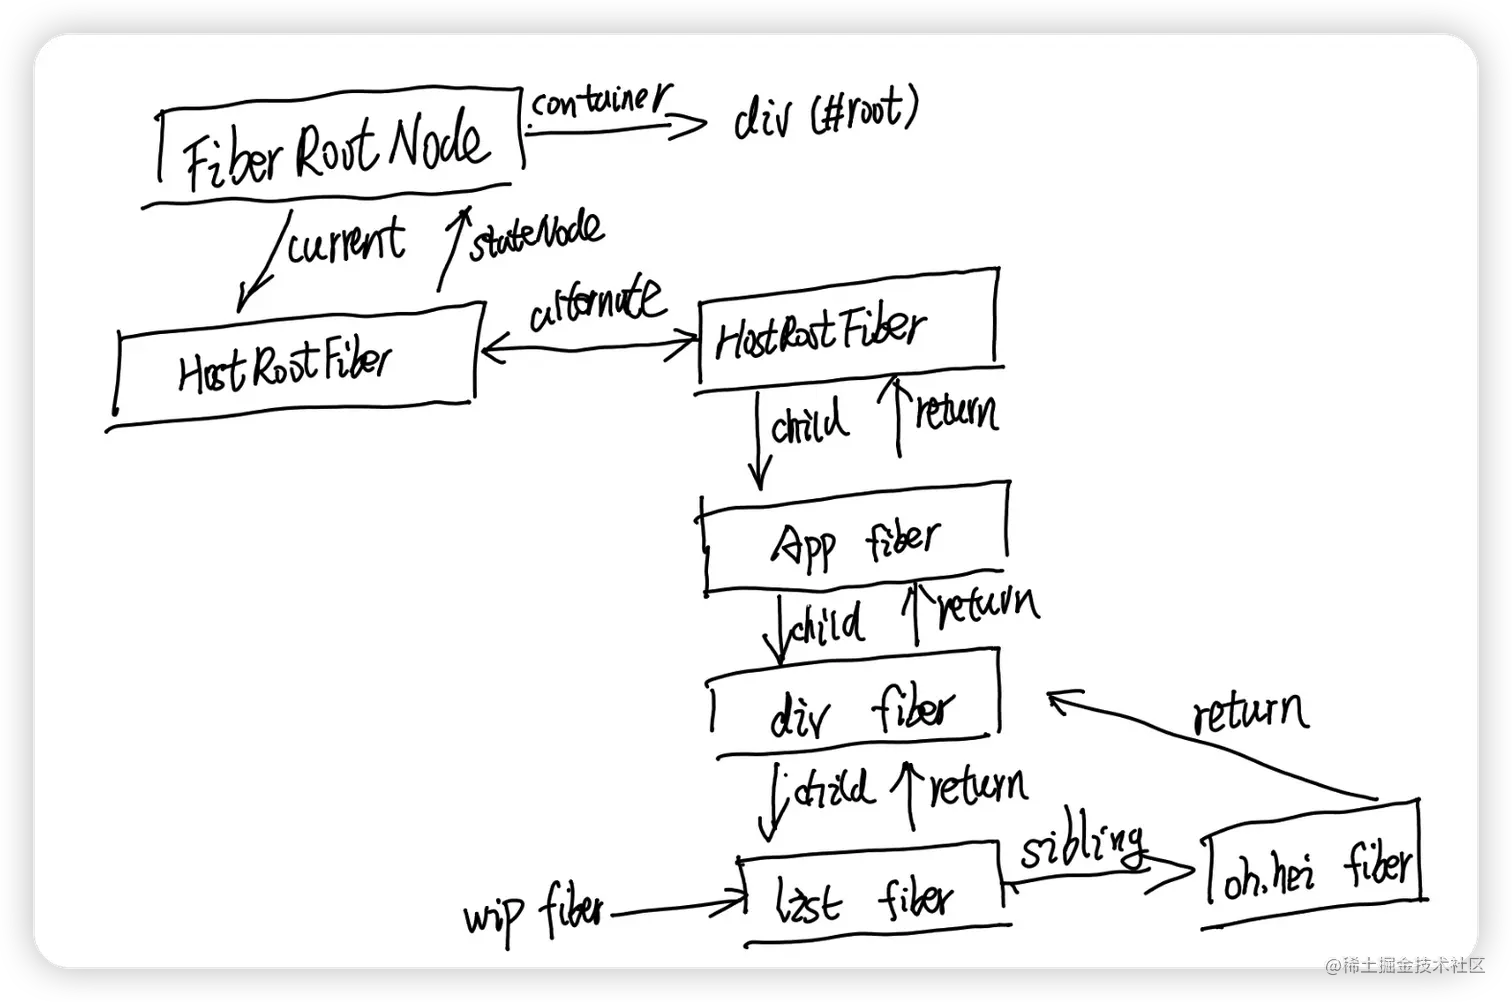 FiberRootNode
container
div (#root)
current
stateNode
HostRootFiber
alternate
HostRootFiber
child
return
App fiber
child
return
div fiber
return
child
return
sibling
wip fiber
list fiber
oh.hei fiber
@稀土掘金技术社区